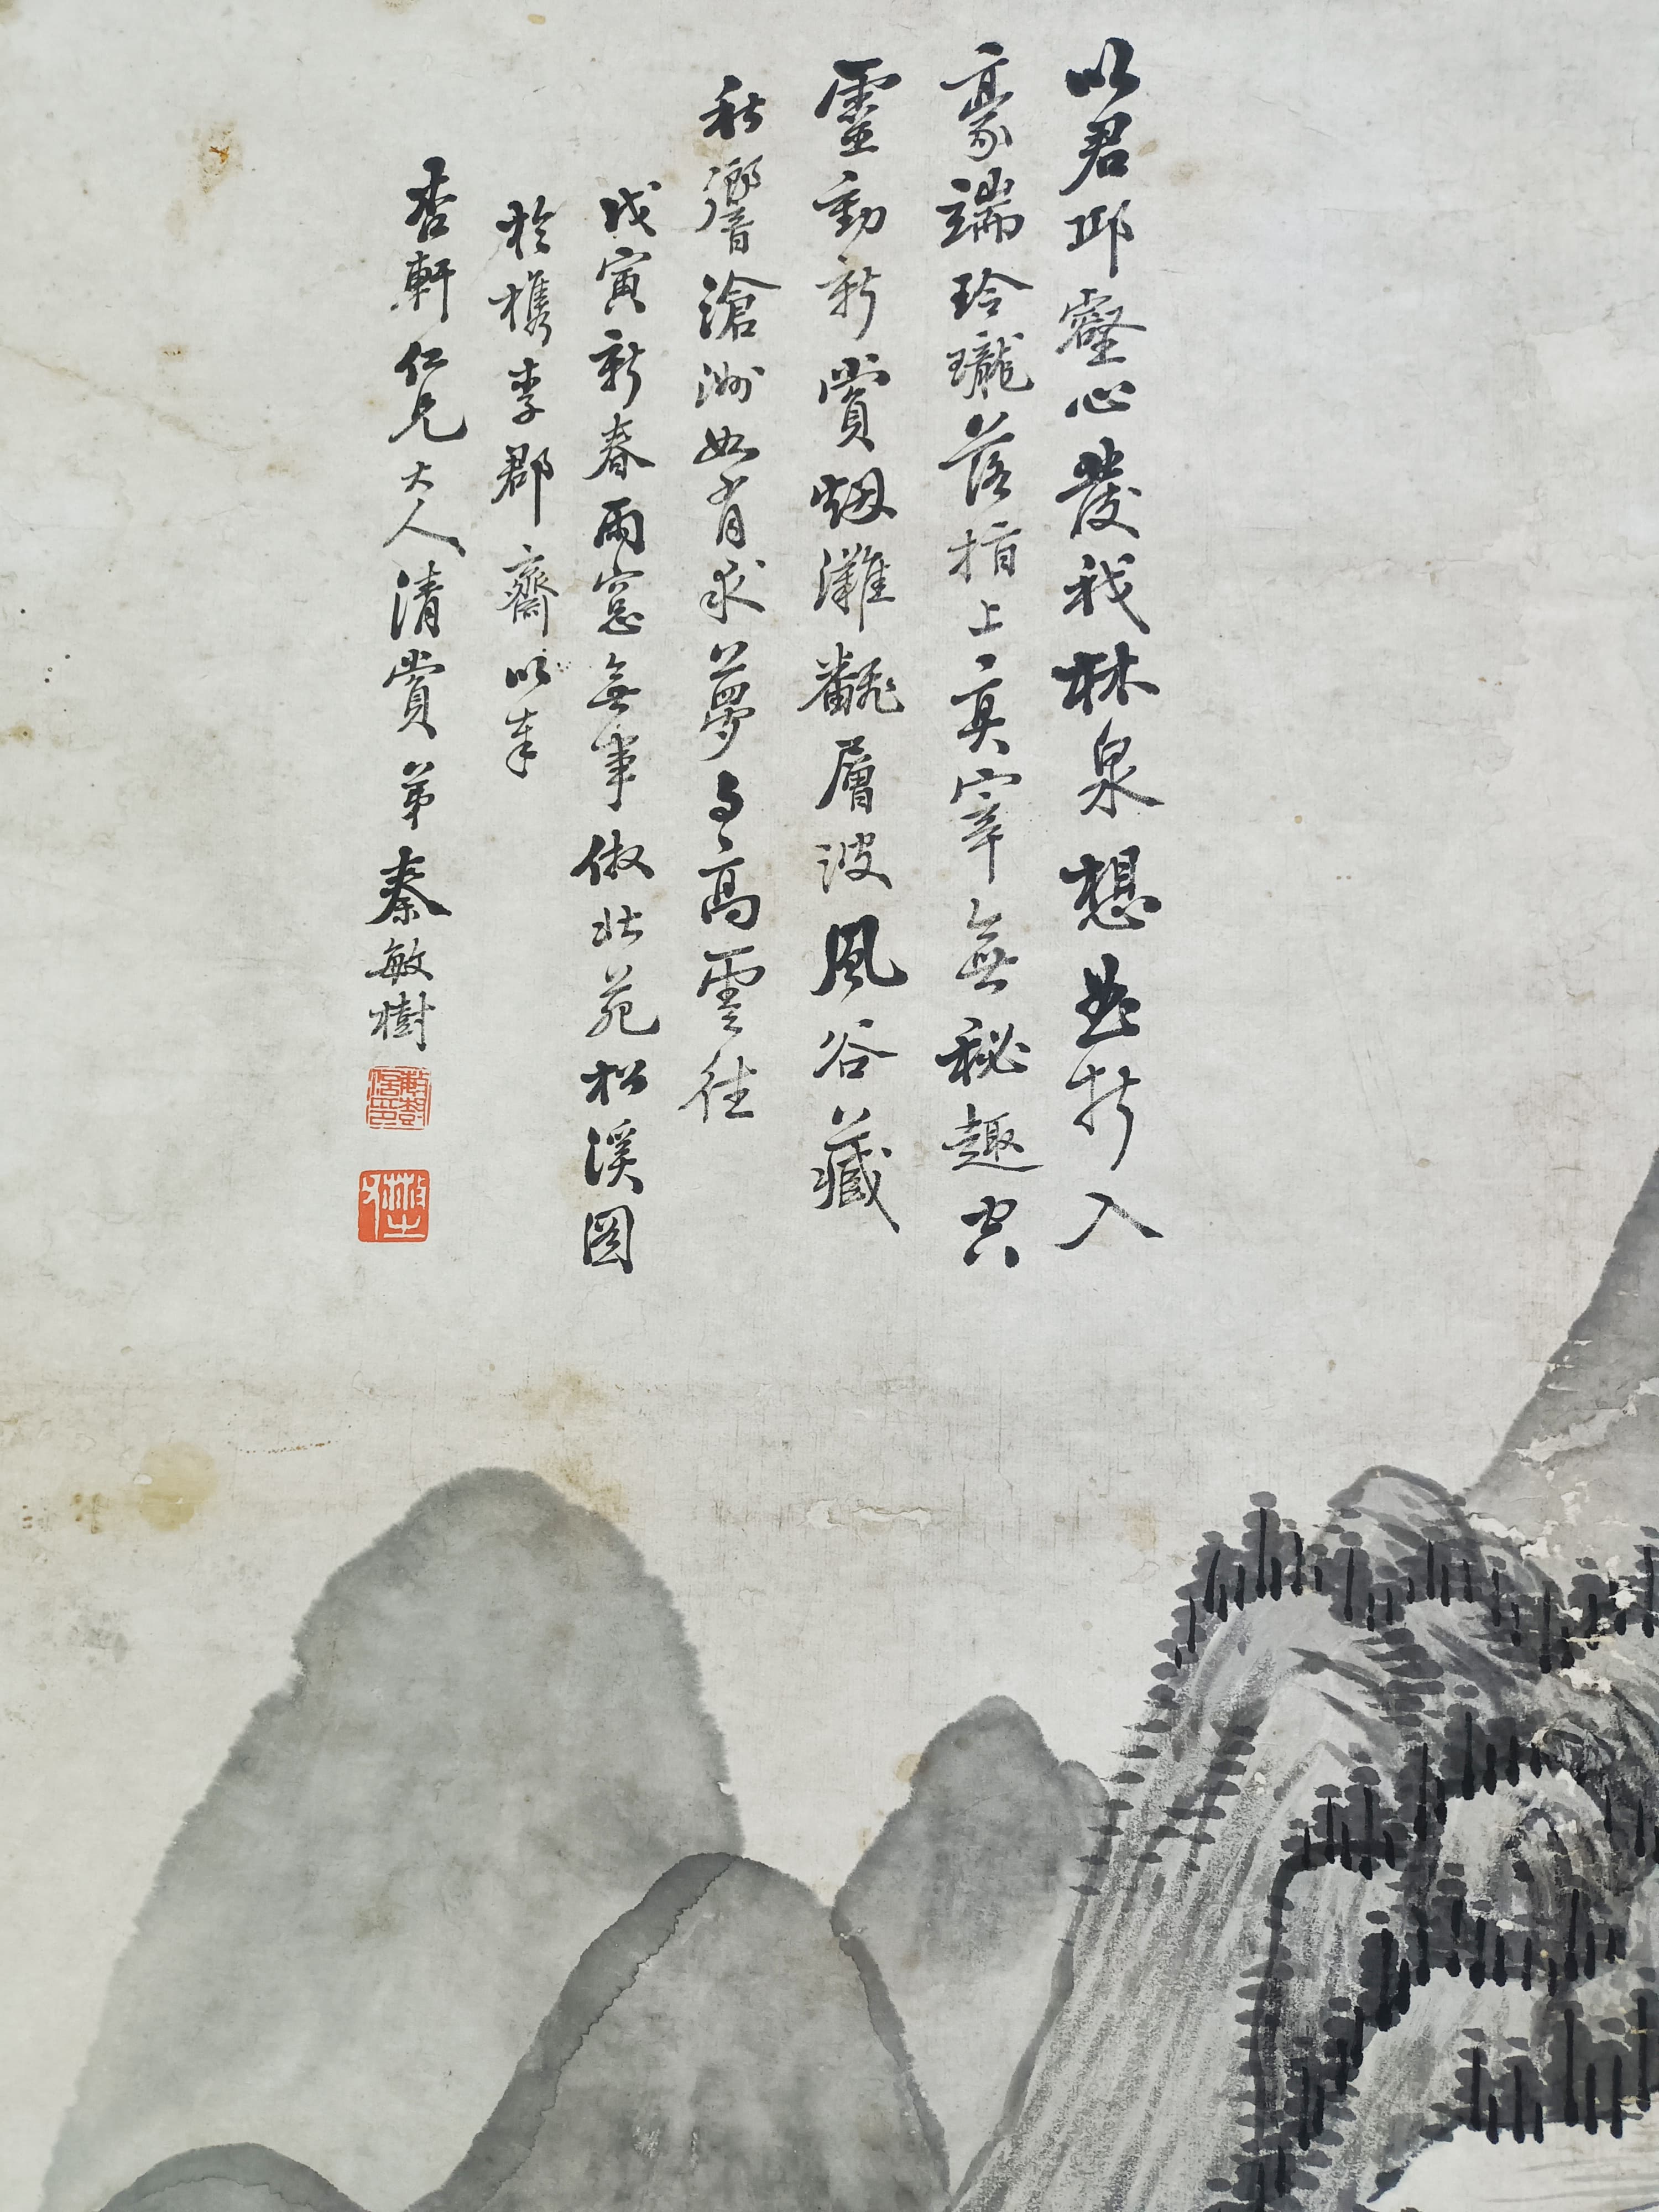 以君邱壑心發我林泉想曲折入
豪端玲瓏落指上真宰無秘趣空
靈動新賞烟灘翻層波風谷藏
秋響滄洲如肯求夢与高雲往
戊寅新春雨窓無事倣北苑松溪圖
於檇李郡齋以奉
杏軒仁兄大人清賞 弟秦敏樹
敏樹信印